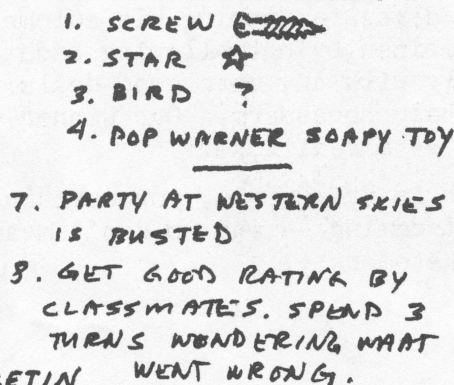 1. SCREW
2. STAR
3. BIRD ?
4. POP WARNER SOAPY TOY
7. PARTY AT WESTERN SKIES
IS BUSTED
8. GET GOOD RATING BY
CLASSMATES. SPEND 3
TURNS WONDERING WHAT
WENT WRONG.